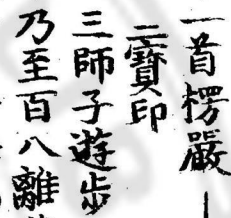 一首楞嚴
二寳印
三師子遊步
乃至百八離